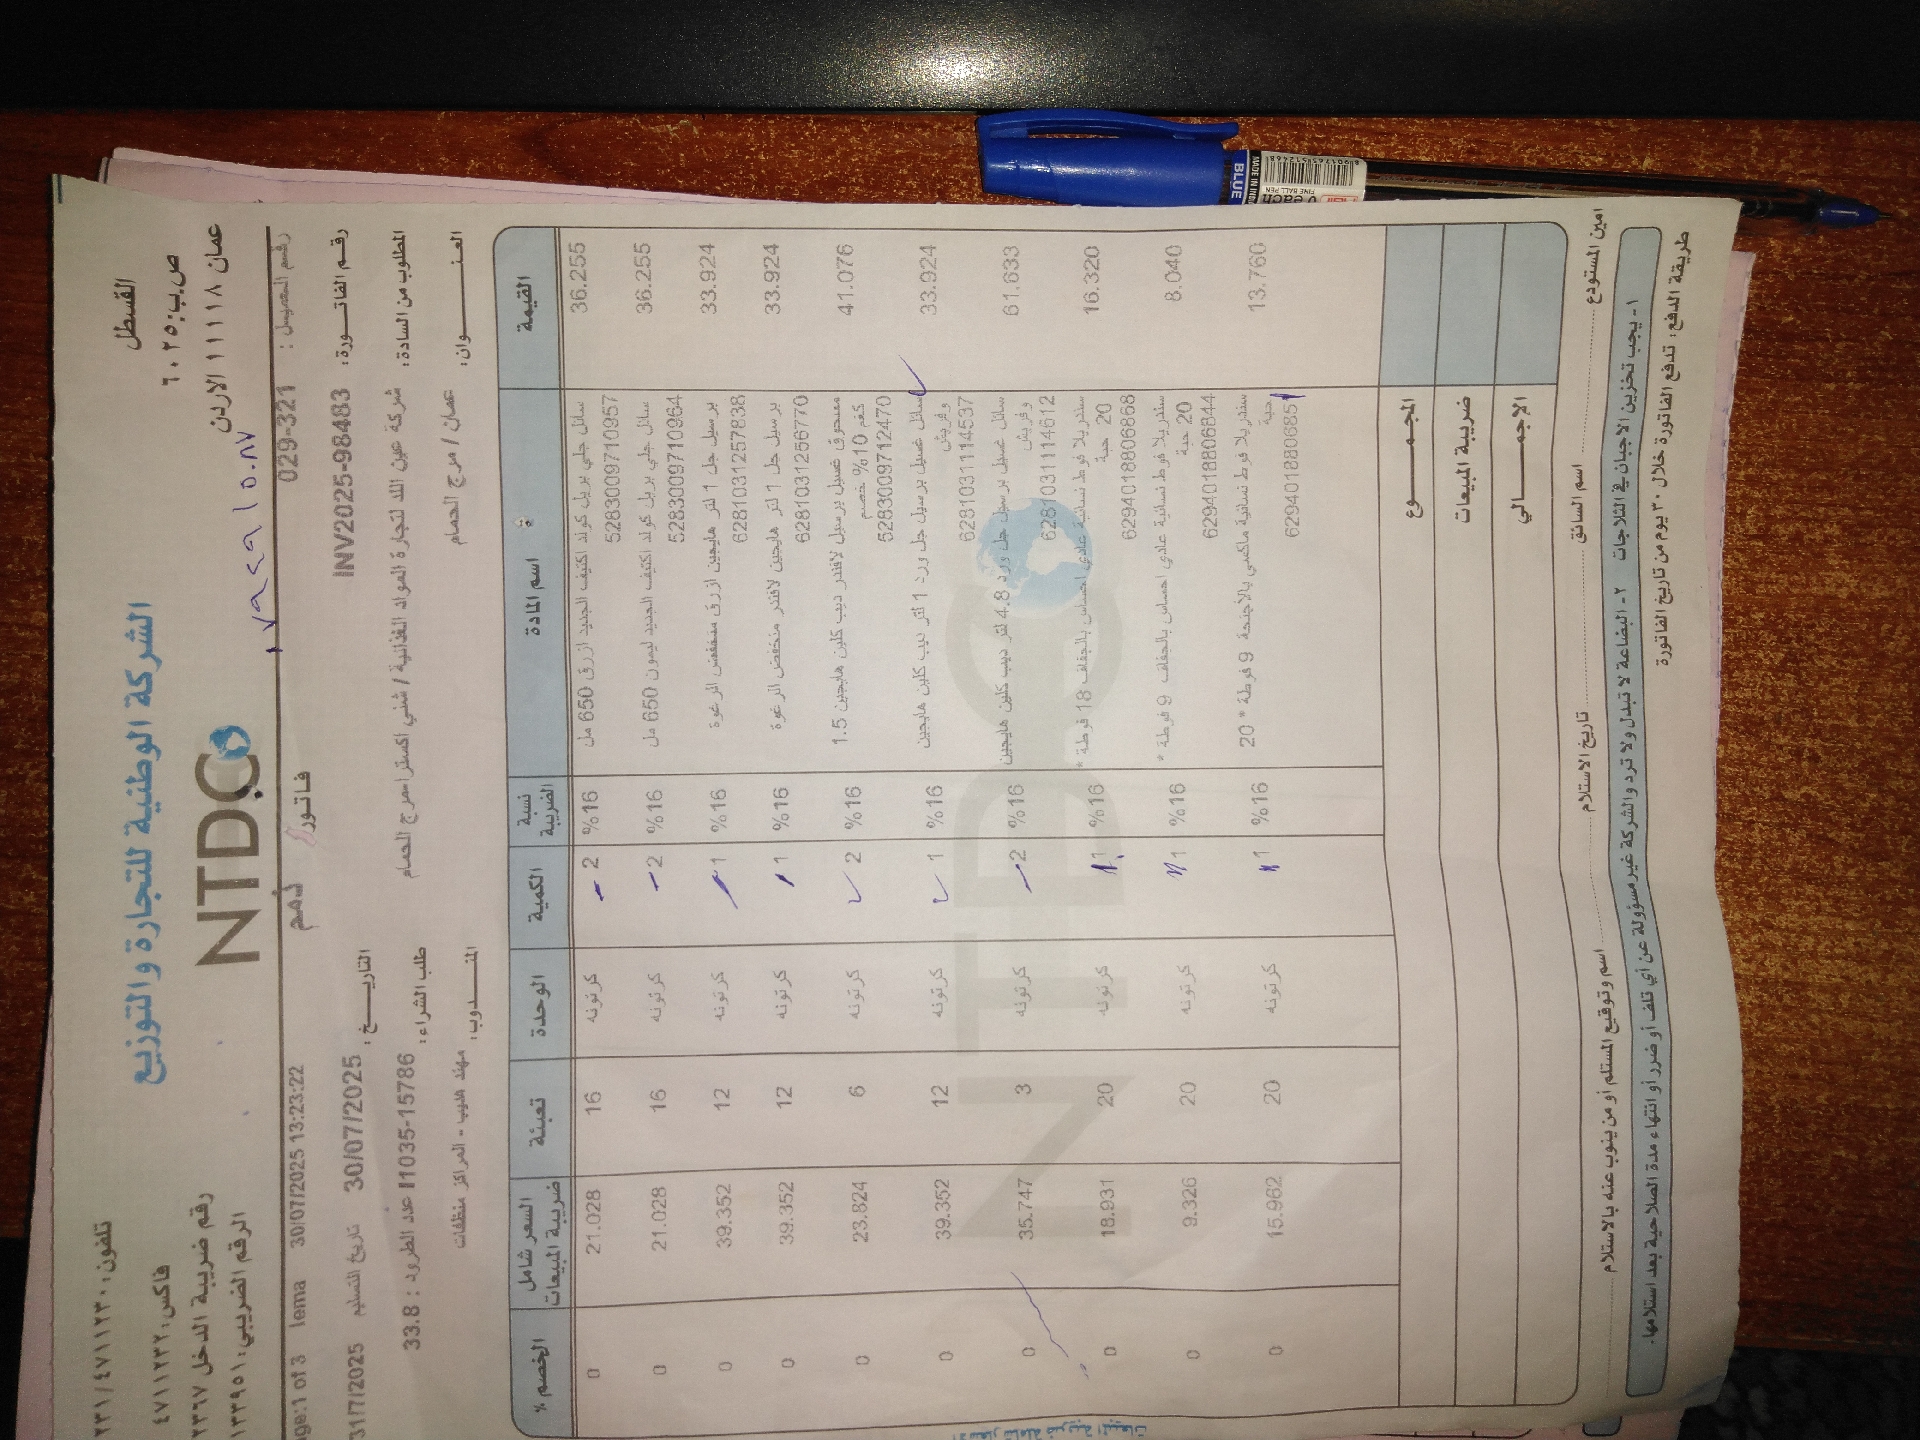 الشركة الوطنية للتجارة والتوزيع
NTDC
القسطل
ص.ب: ٦٠٢٥
عمان ١١١١٨ الاردن
١٧٩٤٩١٥٠٨٧
تلفون: ٢٣١/٤٧١١٢٣٠
فاكس: ٤٧١١٢٣٢
رقم ضريبة الدخل ٢٣٦٧
الرقم الضريبي: ١٣٣٩٥١
فاتورة
ذمم
ge:1 of 3 lema 30/07/2025 13:23:22
رقم العميل : 029-321
رقم الفاتورة: INV2025-98483
التاريخ: 30/07/2025 تاريخ التسليم 31/7/2025
المطلوب من السادة: شركة عين اللد لتجارة المواد الغذائية / شني اكسترا-مرج الحمام
طلب الشراء: I1035-15786 عدد الطرود : 33.8
العنوان: عمان / مرج الحمام
المندوب: مهند هديب - المراكز منظفات
القيمة اسم المادة نسبة الضريبة الكمية الوحدة تعبئة السعر شامل ضريبة المبيعات الخصم %
36.255 سائل جلي بريل كولد اكتيف الجديد ازرق 650 مل %16 2 كرتونه 16 21.028 0
5283009710957
36.255 سائل جلي بريل كولد اكتيف الجديد ليمون 650 مل %16 2 كرتونه 16 21.028 0
5283009710964
33.924 برسيل جل 1 لتر هايجين ازرق منخفض الرغوة %16 1 كرتونه 12 39.352 0
6281031257838
33.924 برسيل جل 1 لتر هايجين لافندر منخفض الرغوة %16 1 كرتونه 12 39.352 0
6281031256770
41.076 مسحوق غسيل برسيل لافندر ديب كلين هايجين 1.5 %16 2 كرتونه 6 23.824 0
كغم 10% خصم
5283009712470
33.924 سائل غسيل برسيل جل ورد 1 لتر ديب كلين هايجين %16 1 كرتونه 12 39.352 0
وفريش
6281031114537
61.633 سائل غسيل برسيل جل ورد 4.8 لتر ديب كلين هايجين %16 2 كرتونه 3 35.747 0
وفريش
6281031114612
16.320 سندريلا فوط نسائية عادي احساس بالجفاف 18 فوطة * %16 1 كرتونه 20 18.931 0
20 حبة
6294018806868
8.040 سندريلا فوط نسائية عادي احساس بالجفاف 9 فوطة * %16 1 كرتونه 20 9.326 0
20 حبة
6294018806844
13.760 سندريلا فوط نسائية ماكسي بالاجنحة 9 فوطة * 20 %16 1 كرتونه 20 15.962 0
حبة
6294018806851
المجموع
ضريبة المبيعات
الإجمالي
امين المستودع اسم السائق تاريخ الاستلام اسم وتوقيع المستلم أو من ينوب عنه بالاستلام
١- يجب تخزين الأجبان في الثلاجات ٢- البضاعة لا تبدل ولا ترد والشركة غير مسؤولة عن أي تلف أو ضرر أو انتهاء مدة الصلاحية بعد استلامها.
طريقة الدفع: تدفع الفاتورة خلال ٣٠ يوم من تاريخ الفاتورة
BLUE
MADE IN IN
FINE BALL PEN